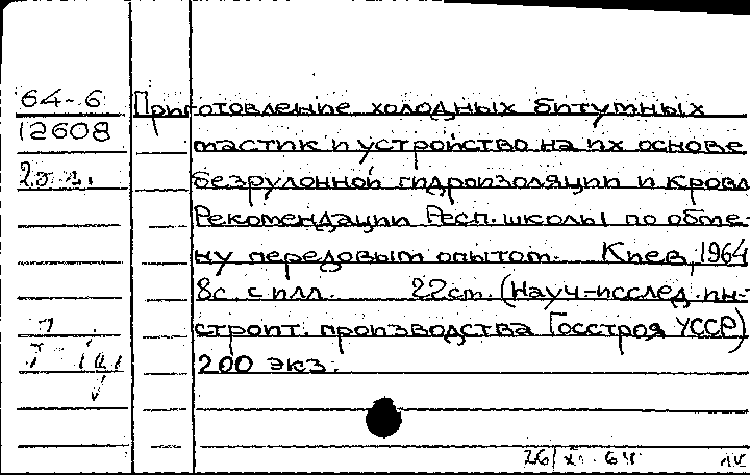 64-6 Приготовление холодных битумных
12608 мастик и устройство на их основе
2 э. безрулонной гидроизоляции и кровл
Рекомендации Респ. школы по обме-
ну передовым опытом. Киев, 1964
8с. с илл. 22см. (Науч-исслед. ин-т
строит. производства Госстроя УССР)
200 экз.
26/XI-64